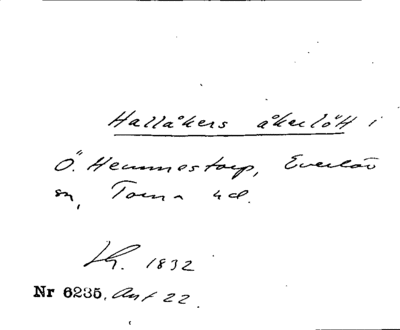 Hallåkers åkerlött i
Ö. Hemmestorp, Everlöv
sn, Torna hd.
Lh. 1832
Nr 6235, Ant 22.